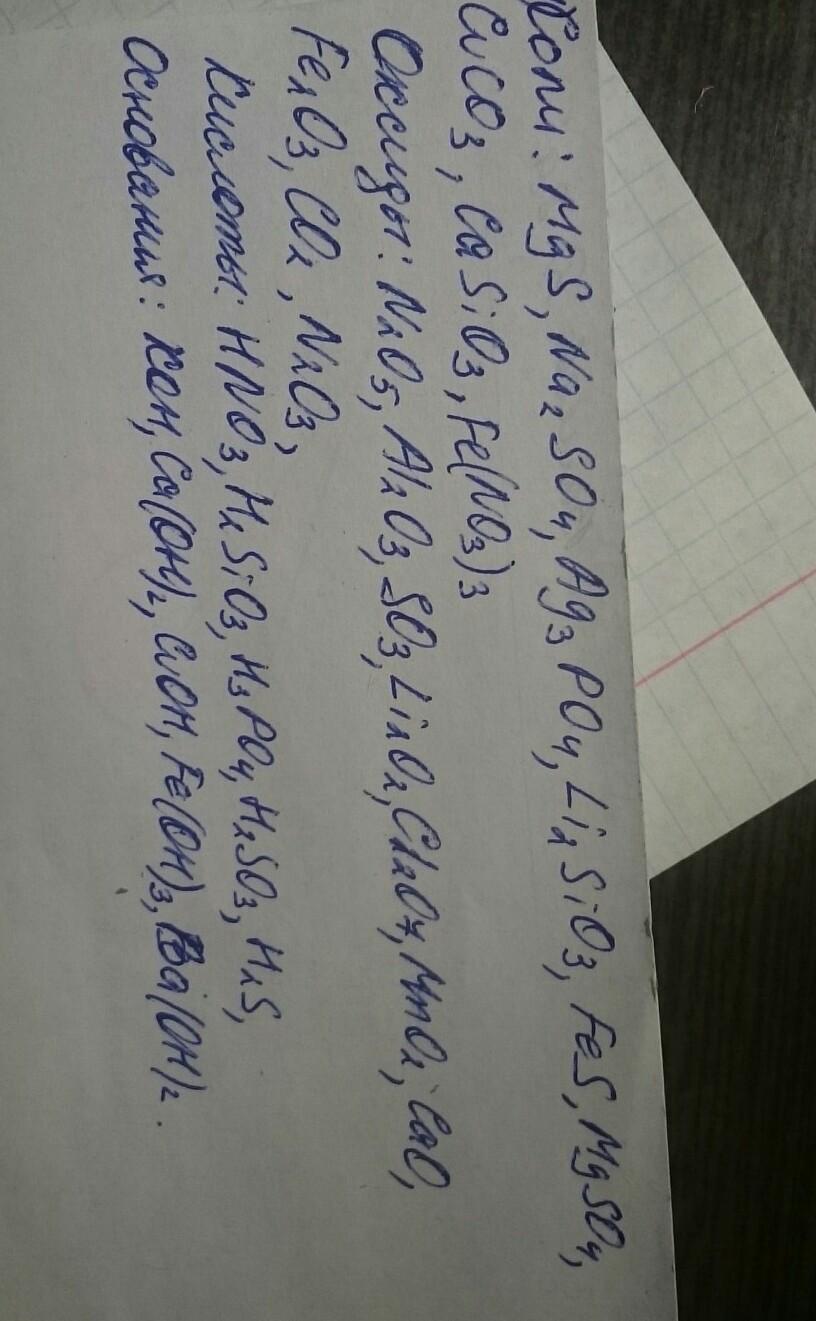 Соли: MgS, Na2SO4, Ag3PO4, Li2SiO3, FeS, MgSO4,
CuCO3, CaSiO3, Fe(NO3)3
Оксиды: N2O5, Al2O3, SO3, Li2O2, Cl2O7, MnO2, CaO,
Fe2O3, CO2, N2O3,
Кислоты: HNO3, H2SiO3, H3PO4, H2SO3, H2S,
Основания: KOH, Ca(OH)2, CuOH, Fe(OH)3, Ba(OH)2.